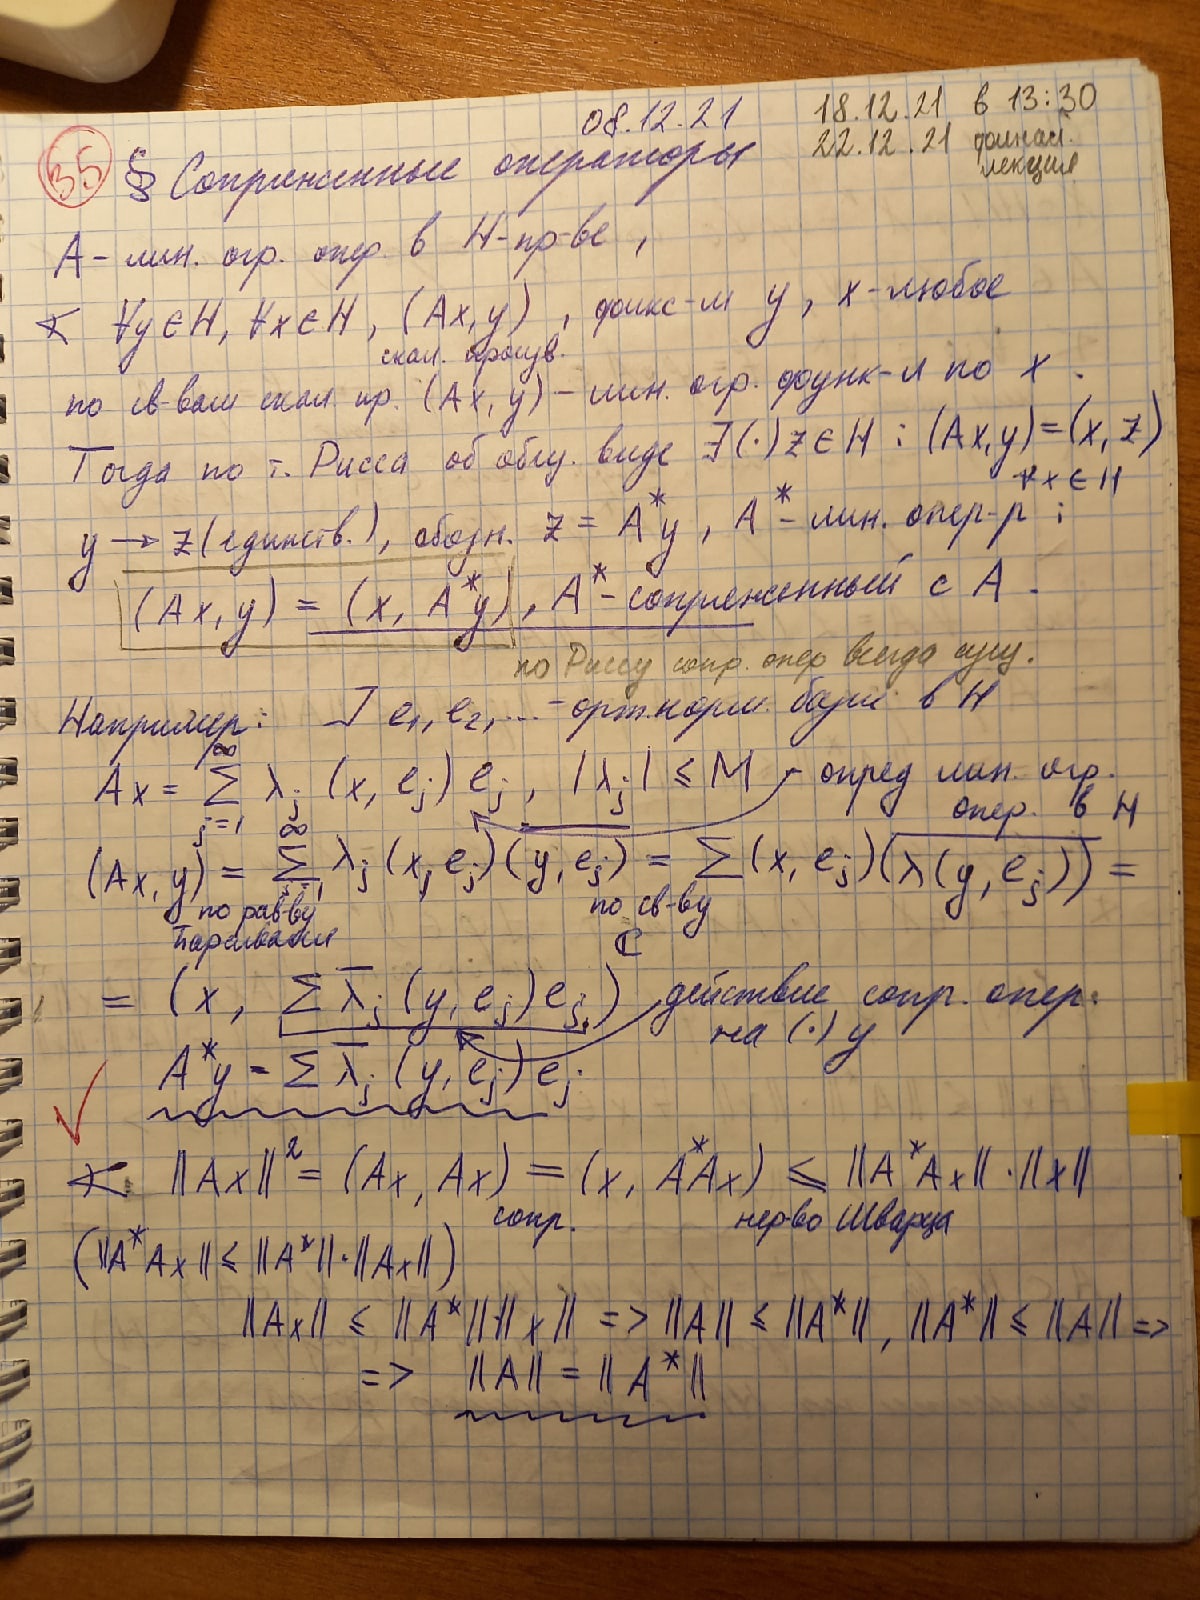 08.12.21
18.12.21 в 13:30
22.12.21 финал. лекция
35 § Сопряженные операторы
A - лин. огр. опер. в H-пр-ве,
∀y∈H, ∀x∈H, (Ax, y), фикс-м y, x-любое
скал. произв.
по св-вам скал. пр. (Ax, y) - лин. огр. функ-л по x.
Тогда по т. Рисса об общ. виде ∃(·) z∈H : (Ax, y) = (x, z)
∀x∈H
y → z (единств.), обозн. z = A*y, A* - лин. опер-р :
(Ax, y) = (x, A*y), A* - сопряженный с A.
по Риссу сопр. опер всегда сущ.
Например: ] e₁, e₂, ... - орт.норм. базис в H
Ax = ∑_{j=1}^{∞} λ_j (x, e_j) e_j, |λ_j| ≤ M - опред лин. огр.
опер. в H
(Ax, y) = ∑_{j=1}^{∞} λ_j (x, e_j) \overline{(y, e_j)} = ∑ (x, e_j) \overline{(λ(y, e_j))} =
по рав-ву Парсеваля
по св-ву ℂ
= (x, ∑ \overline{λ}_j (y, e_j) e_j) действие сопр. опер.
на (·) y
A*y = ∑ \overline{λ}_j (y, e_j) e_j
||Ax||² = (Ax, Ax) = (x, A*Ax) ≤ ||A*Ax|| · ||x||
сопр. нер-во Шварца
(||A*Ax|| ≤ ||A*|| · ||Ax||)
||Ax|| ≤ ||A*|| ||x|| => ||A|| ≤ ||A*||, ||A*|| ≤ ||A|| =>
=> ||A|| = ||A*||